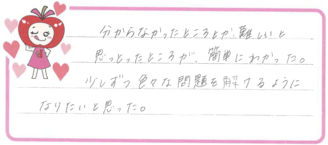 分からなかったところとか、難しいと
思っとったところが、簡単にわかった。
少しずつ色々な問題を解けるように
なりたいと思った。